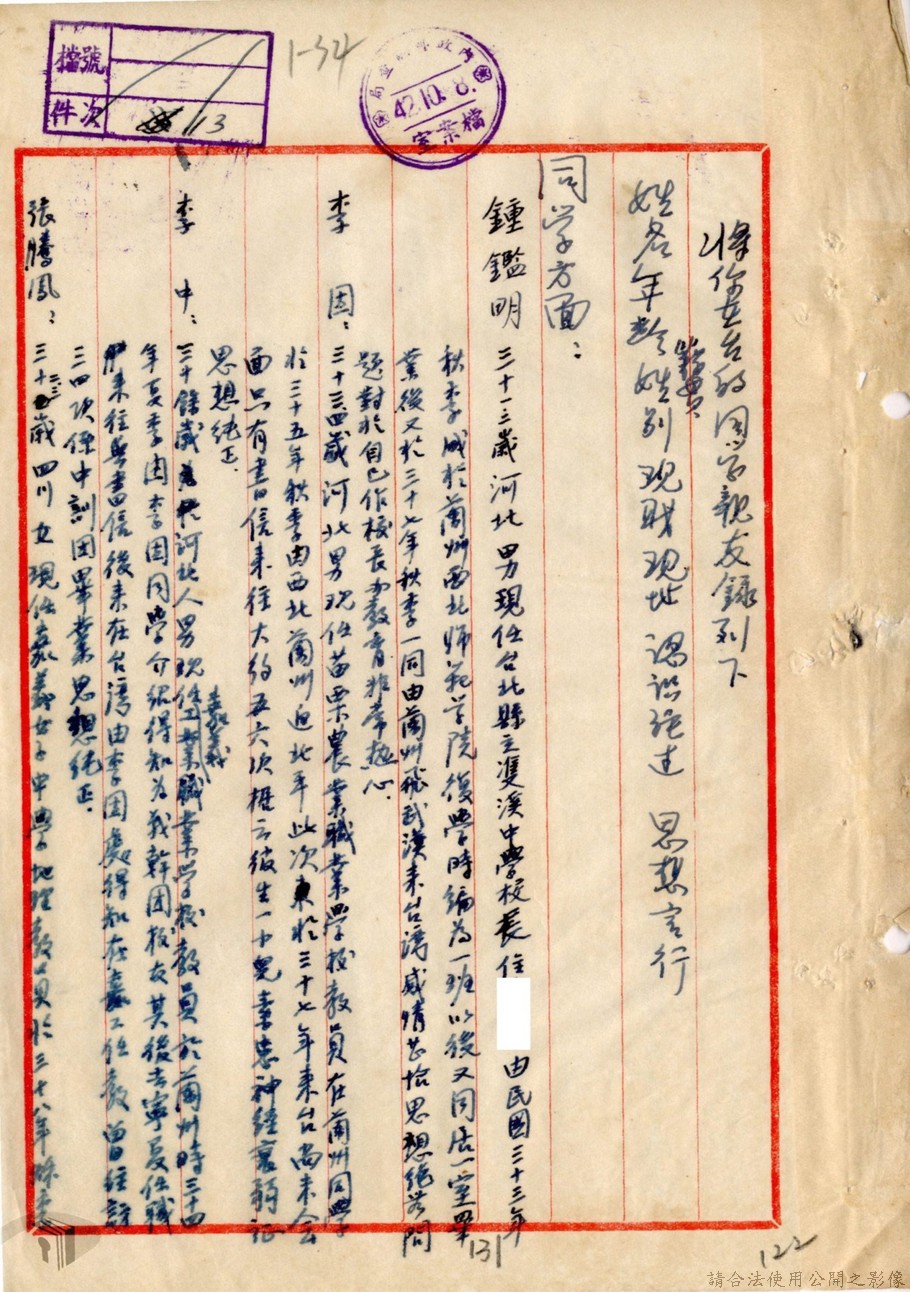 檔號
件次
13
1-34
內政部
局
42.10.8.
檔案室
將你在台的同学親友錄列下
姓名年龄姓別現职現址 認識經过 思想言行
籍貫
同学方面：
鍾鑑明 三十三歲河北男現任台北縣立雙溪中學校長住 由民國三十三年
秋季咸於蘭州西北师範学院復學時編為一班以後又同居一室畢
業後又於三十七年秋季一同由蘭州飛武漢来台灣感情甚恰思想絕无問
題對於自已作校長办教育非常热心．
李 因：三十三四歲河北男現任苗栗農業職業學校教員在蘭州同學
於三十五年秋季由西北蘭州迫北平此次東於三十七年来台尚未会
面只有書信来往大約五六次概云彼生一小兒妻患神經衰弱证
思想純正．
李 中：三十餘歲河北人男現任嘉義工業職業学校教員於蘭州時三十四
年夏季由李因同學介紹得知为战幹团校友其後去寧夏任職
来往與書信後来在台灣由李因處得知在嘉工任教曾往訪
三四次係中訓团畢業思想純正．
張騰鳳：三十二三歲四川女現任嘉義女子中學地理教員於三十八年
131
122
請合法使用公開之影像